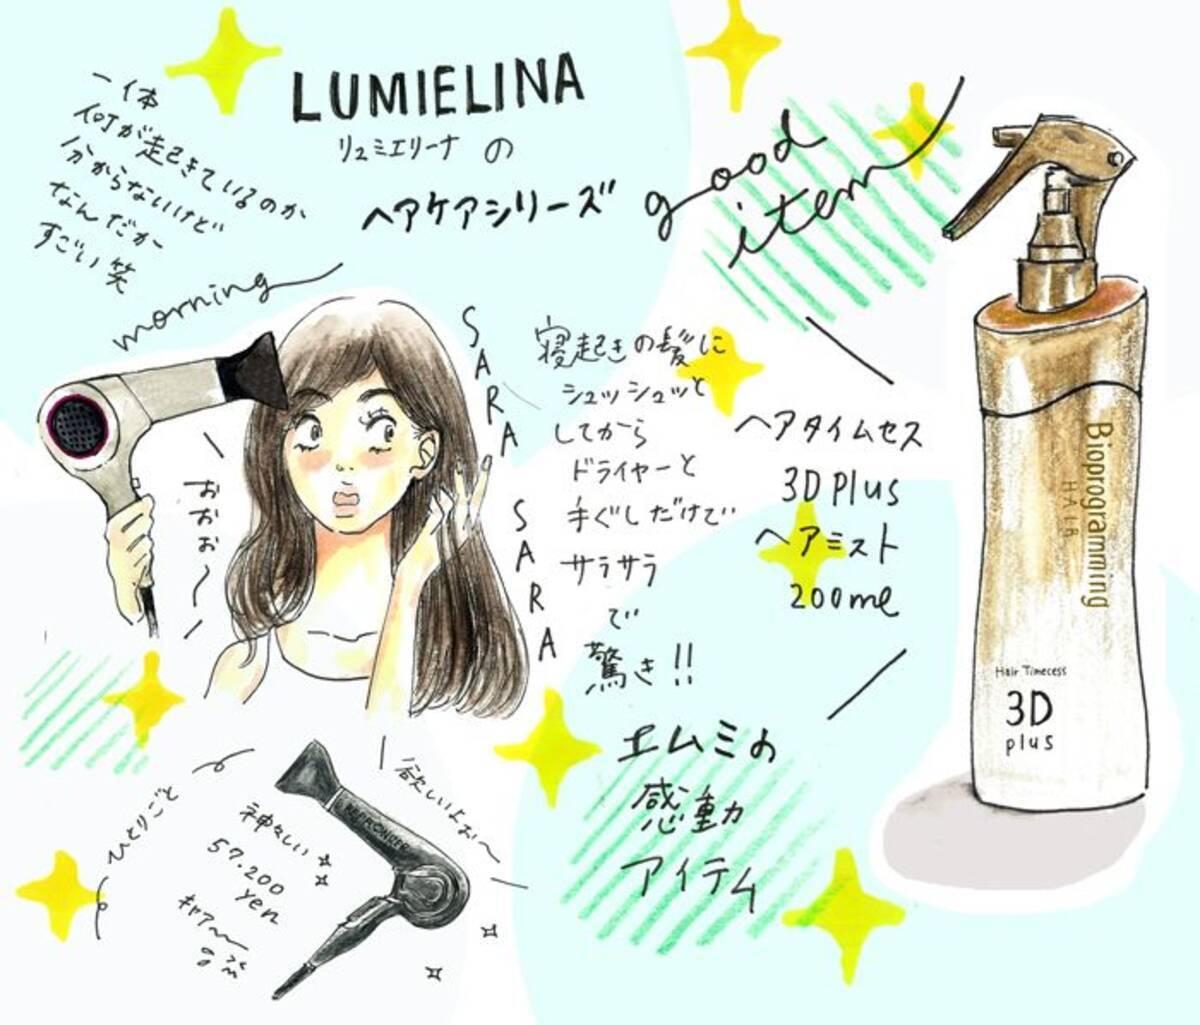 LUMIELINA
リュミエリーナ の
ヘアケアシリーズ
good
item
一体
何が起きているのか
分からないけど
なんだか
すごい 笑
morning
おおぉ〜
SARA
SARA
寝起きの髪に
シュッシュッと
してから
ドライヤーと
手ぐしだけで
サラサラ
で
驚き!!
ヘアタイムセス
3D Plus
ヘアミスト
200ml
Bioprogramming
HAIR
Hair Timecess
3D
plus
エムミの
感動
アイテム
ひとりごと
神々しい
57.200
yen
キャア〜
欲しいよぉ〜